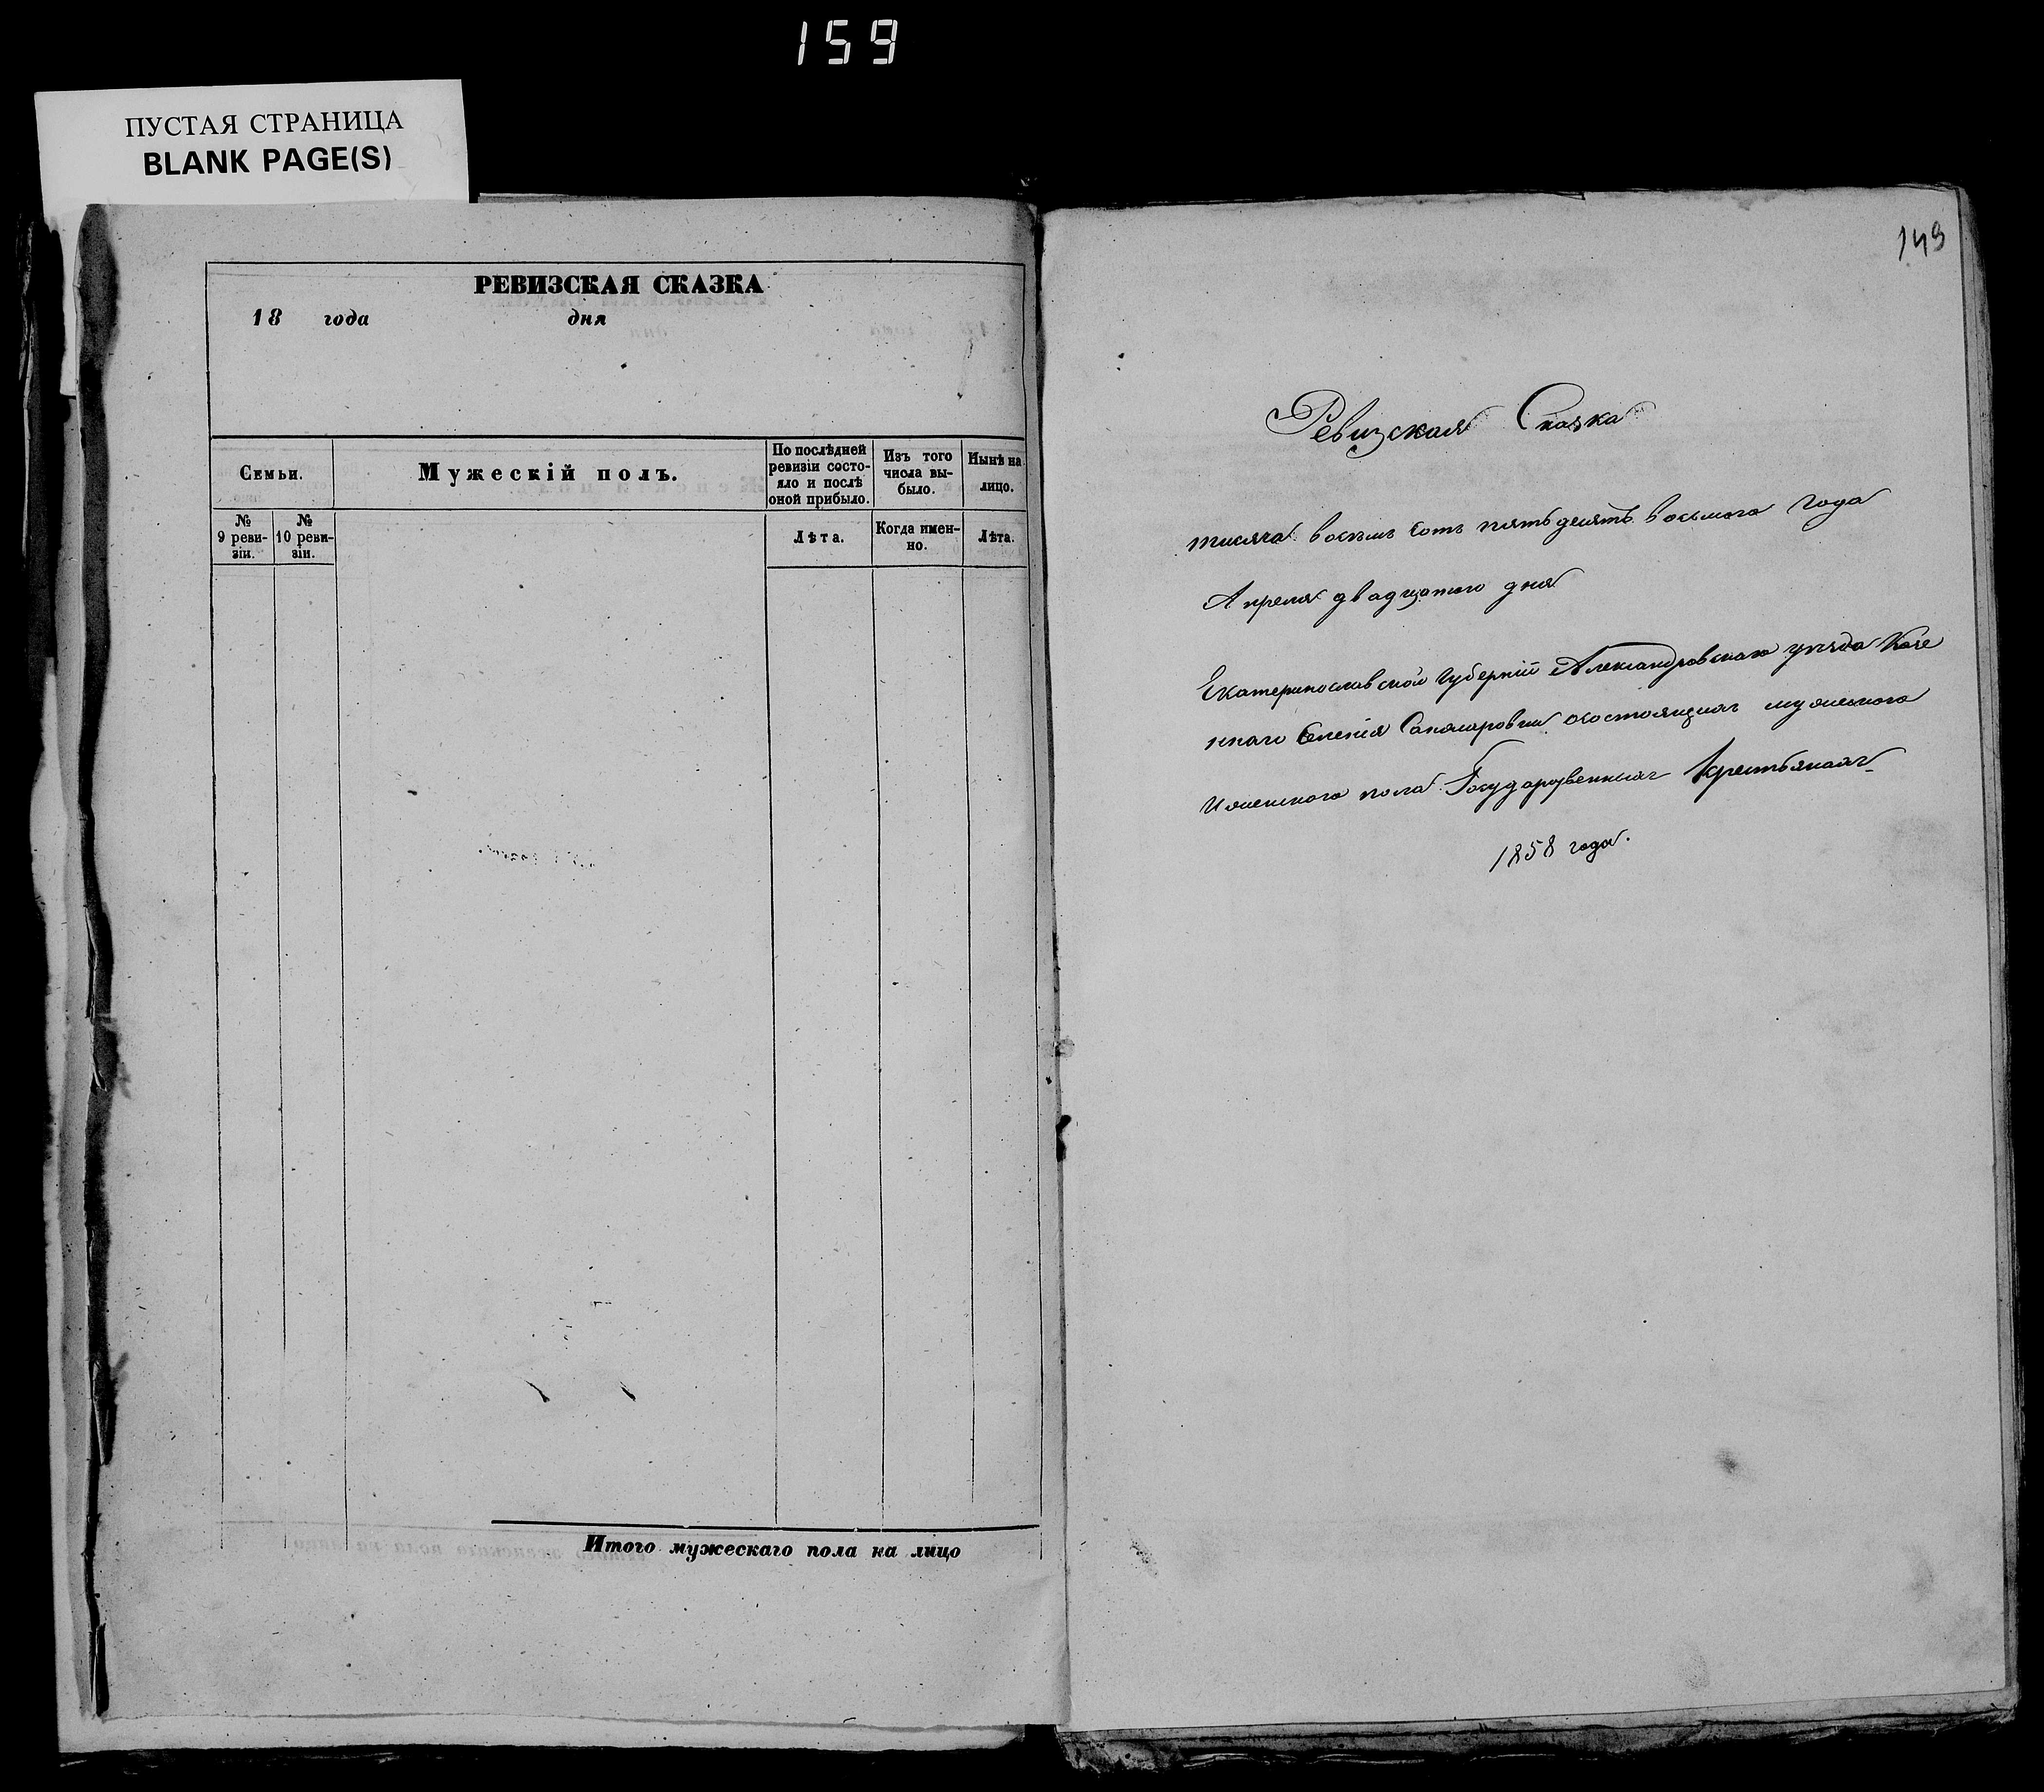 159
ПУСТАЯ СТРАНИЦА
BLANK PAGE(S)
РЕВИЗСКАЯ СКАЗКА
18 года дня
Семьи.
Мужескій полъ.
По послѣдней
ревизіи состо-
яло и послѣ
оной прибыло.
Изъ того
числа вы-
было.
Нынѣ на
лицо.
№
9 реви-
зіи.
№
10 реви-
зіи.
Лѣта.
Когда имен-
но.
Лѣта.
Итого мужескаго пола на лицо
149
Ревизская Сказка
тисяча восемь сотъ пятьдесятъ восьмого Года
Апреля двадцатого дня
Екатеринославской Губерніи Александровскаго уѣзда Казе
ннаго Селенія состоящихъ мужеского
и женского пола Государственныхъ Крестьянахъ
1858 года.